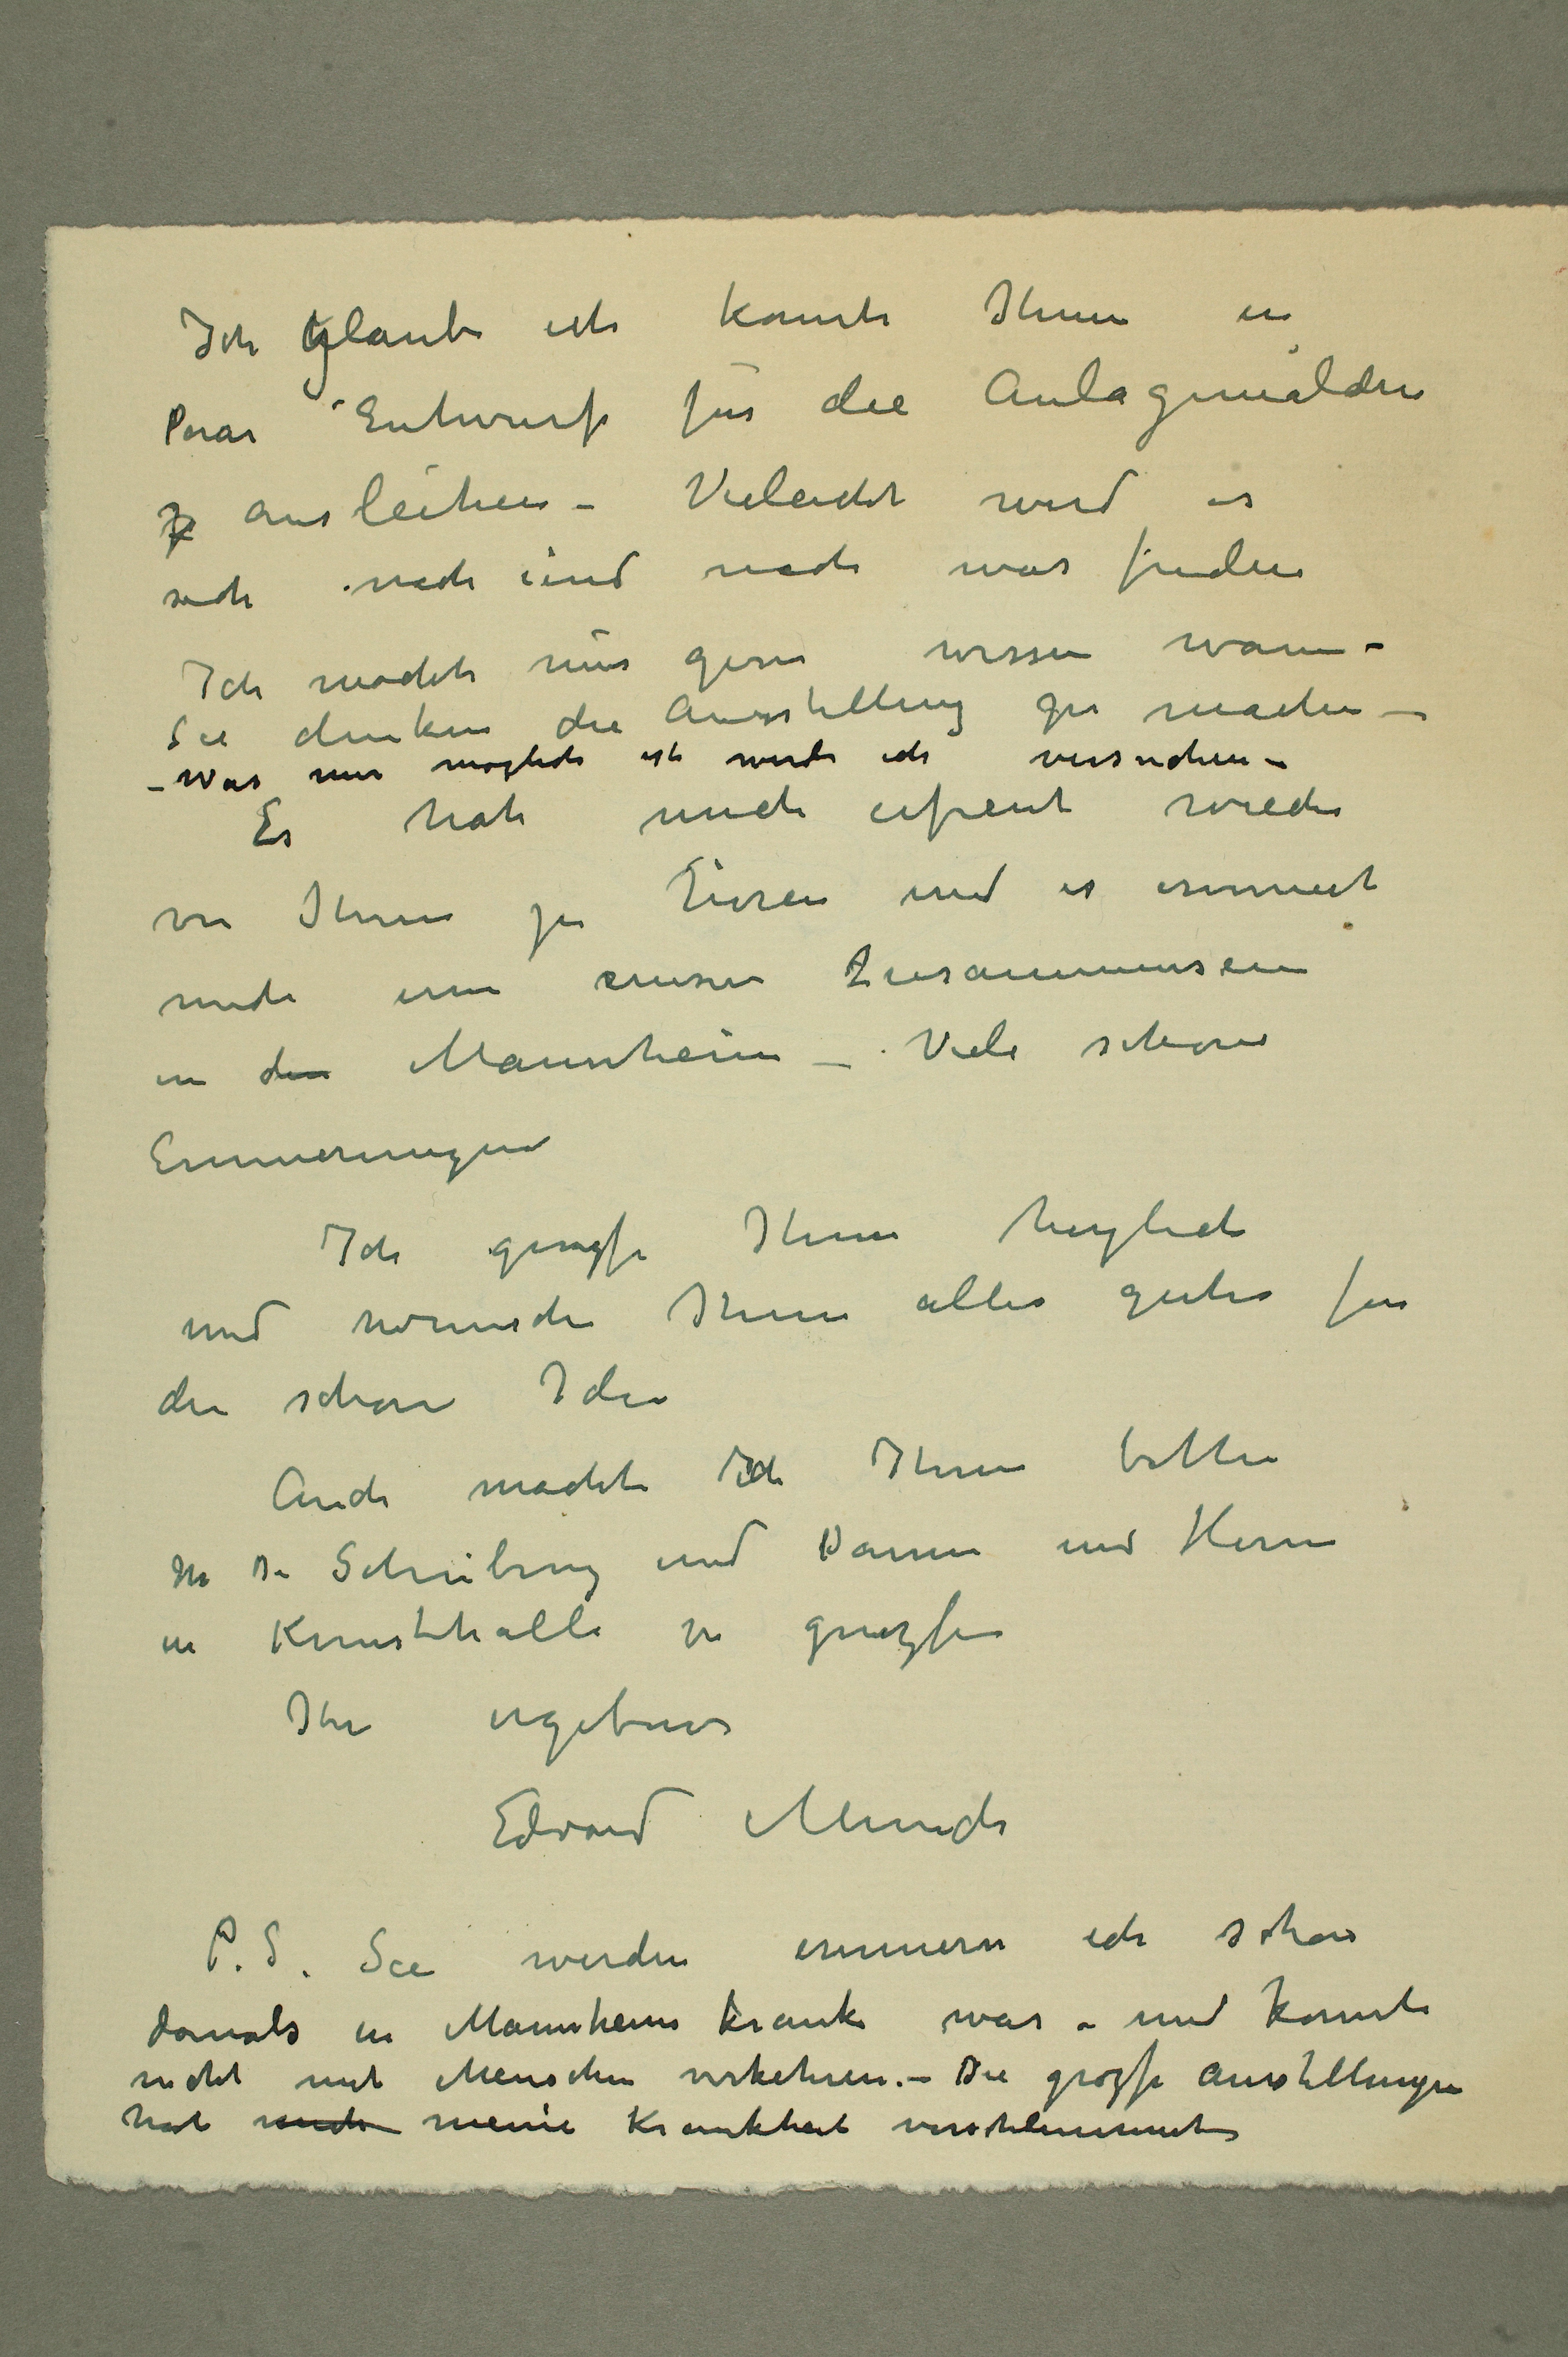 Ich Glaube ich konnte Ihnen ein
Paar Entwurfe für die Aulagemälden
zu ausleihen – Vieleicht wird es
sich nach und nach was finden
Ich möchte nur gern wissen wann –
Sie denken die Ausstellung zu machen –
– Was mir möglich ist werde ich versuchen –
Es hat mich erfreut wieder
von Ihnen zu hören und es erinnert
mich um unser Zusammensein
in den Mannheim – Viele schöne
Erinnerungen
Ich grüzse Ihnen herzlich
und wünsche Ihnen alles gutes für
den schönen Iden
Auch möchte Ich Ihnen bitten
Hr Dr Schreibung und Damen und Herrn
in Kunsthalle zu grüzsen
Ihr ergebener
Edvard Munch
P.S. Sie werden erinnern ich schon
damals in Mannheim krank war – und konnte
nicht mit Menschen verkehren. – Die grozse Ausstellungen
hat mich meine Krankheit verschlimmert